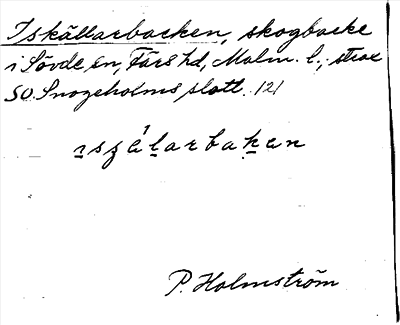 Iskällarbacken, skogbacke
i Sövde sn, Färs hd, Malm. l., strax
SO. Snogeholms slott. 121
ɪszɛ́larbakɛn
P. Holmström